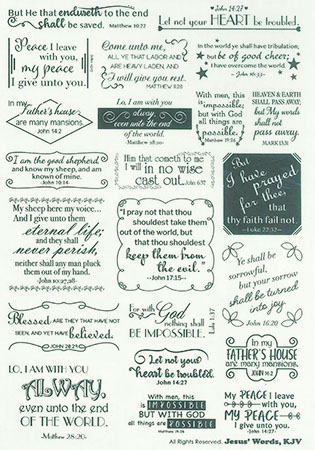 But He that endureth to the end
shall be saved. Matthew 10:22
John 14:27
Let not your HEART be troubled.
Peace I leave
with you,
my peace
I give unto you.
Come unto me,
ALL YE THAT LABOR AND
ARE HEAVY LADEN, AND
I will give you rest.
MATTHEW 11:28
In the world ye shall have tribulation;
but be of good cheer;
I have overcome the world.
- John 16:33-
In my
Father's house
are many mansions.
John 14:2
Lo, I am with you
alway,
even unto the end
of the world.
Matthew 28:20
With men, this
is impossible;
but with God
all things are
possible.
Matthew 19:26
HEAVEN & EARTH
SHALL PASS AWAY;
but My words
shall not
pass away.
MARK 13:31
I am the good shepherd,
and know my sheep, and am
known of mine.
John 10:14
Him that cometh to me
I will in no wise
cast out. John 6:37
But
I have
prayed
for thee
that
thy faith fail not.
Luke 22:32
My sheep hear my voice...
And I give unto them
eternal life;
and they shall
never perish,
neither shall any man pluck
them out of my hand.
-John 10:27,28-
"I pray not that thou
shouldest take them
out of the world, but
that thou shouldest
keep them from
the evil."
--John 17:15--
Ye shall be
sorrowful,
but your sorrow
shall be turned
into joy.
John 16:20
Blessed ARE THEY THAT HAVE NOT
SEEN, AND YET HAVE believed.
JOHN 20:29
For with God
nothing shall
BE IMPOSSIBLE.
Luke 1:37
In my
FATHER'S HOUSE
are many mansions.
JOHN 14:2
LO, I AM WITH YOU
ALWAY,
even unto the end
OF THE WORLD.
Matthew 28:20-
Let not your
heart be troubled.
John 14:27
With men, this is
IMPOSSIBLE
BUT WITH GOD
all things are POSSIBLE
Matthew 19:26
My PEACE I leave
with you,
MY PEACE
I give unto you.
-John 14:27-
All Rights Reserved. Jesus' Words, KJV